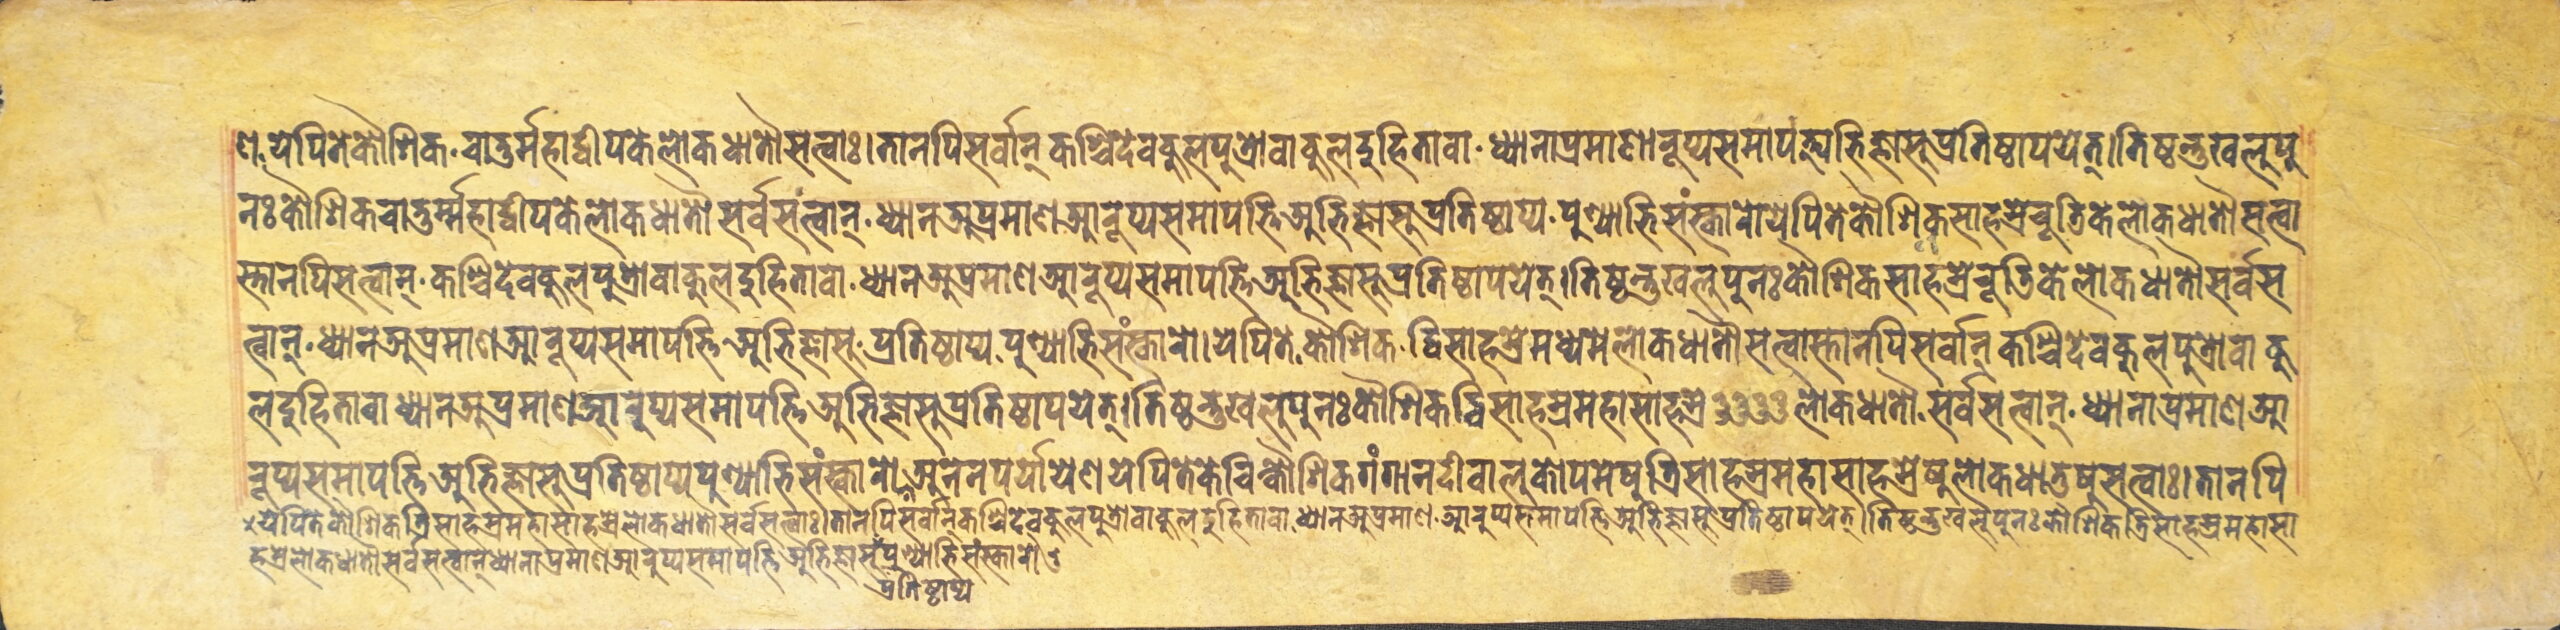 ण. येपितेकौशिक. चातुर्महाद्वीपकेलोकधातौसत्वाः। तानपिसर्वान् कश्चिदेवकुलपुत्रोवाकुलदुहितावा. ध्यानाप्रमाणारूप्यसमापत्त्यभिज्ञासुप्रतिष्ठापयेत्। तिष्ठन्तुखलुपु
नः कौशिकचातुर्म्महाद्वीपकेलोकधातौसर्वसत्वान्. ध्यानअप्रमाणआरूप्यसमापत्तिअभिज्ञासुप्रतिष्ठाप्य. पुण्याभिसंस्कारोयेपितेकौशिकसाहस्रेचूडिकेलोकधातौसत्वा
स्तानपिसत्वान्. कश्चिदेवकुलपुत्रोवाकुलदुहितावा. ध्यानअप्रमाणआरूप्यसमापत्तिअभिज्ञासुप्रतिष्ठापयेत्। तिष्ठन्तुखलुपुनः कौशिकसाहस्रेचूडिकेलोकधातौसर्वस
त्वान्. ध्यानअप्रमाणआरूप्यसमापत्तिअभिज्ञासु. प्रतिष्ठाप्य. पुण्याभिसंस्कारो। येपिते. कौशिक. द्विसाहस्रेमध्यमेलोकधातौसत्वास्तानपिसर्वान् कश्चिदेवकुलपुत्रोवाकु
लदुहितावाध्यानअप्रमाणआरूप्यसमापत्तिअभिज्ञासुप्रतिष्ठापयेत्। तिष्ठन्तुखलुपुनः कौशिकद्विसाहस्रमहासाहस्रेलोकधातौ. सर्वसत्वान्. ध्यानाप्रमाणआ
रूप्यसमापत्तिअभिज्ञासुप्रतिष्ठाप्यपुण्याभिसंस्कारो अनेनपर्यायेणयेपितेकेचित्कौशिकगंगानदीवालुकोपमेषुत्रिसाहस्रमहासाहस्रेषुलोकधातुषुसत्वाः। तानपि
येपितेकौशिकत्रिसाहस्रमहासाहस्रेलोकधातौसर्वसत्वाः। तानपिसर्वान्कश्चिदेवकुलपुत्रोवाकुलदुहितावा. ध्यानअप्रमाण. आरूप्यसमापत्तिअभिज्ञासुप्रतिष्ठापयेत्। तिष्ठन्तुखलुपुनः कौशिकत्रिसाहस्रमहासा
हस्रेलोकधातौसर्वसत्वान्ध्यानाप्रमाणआरूप्यसमापत्तिअभिज्ञासुपुण्याभिसंस्कारो
प्रतिष्ठाप्य